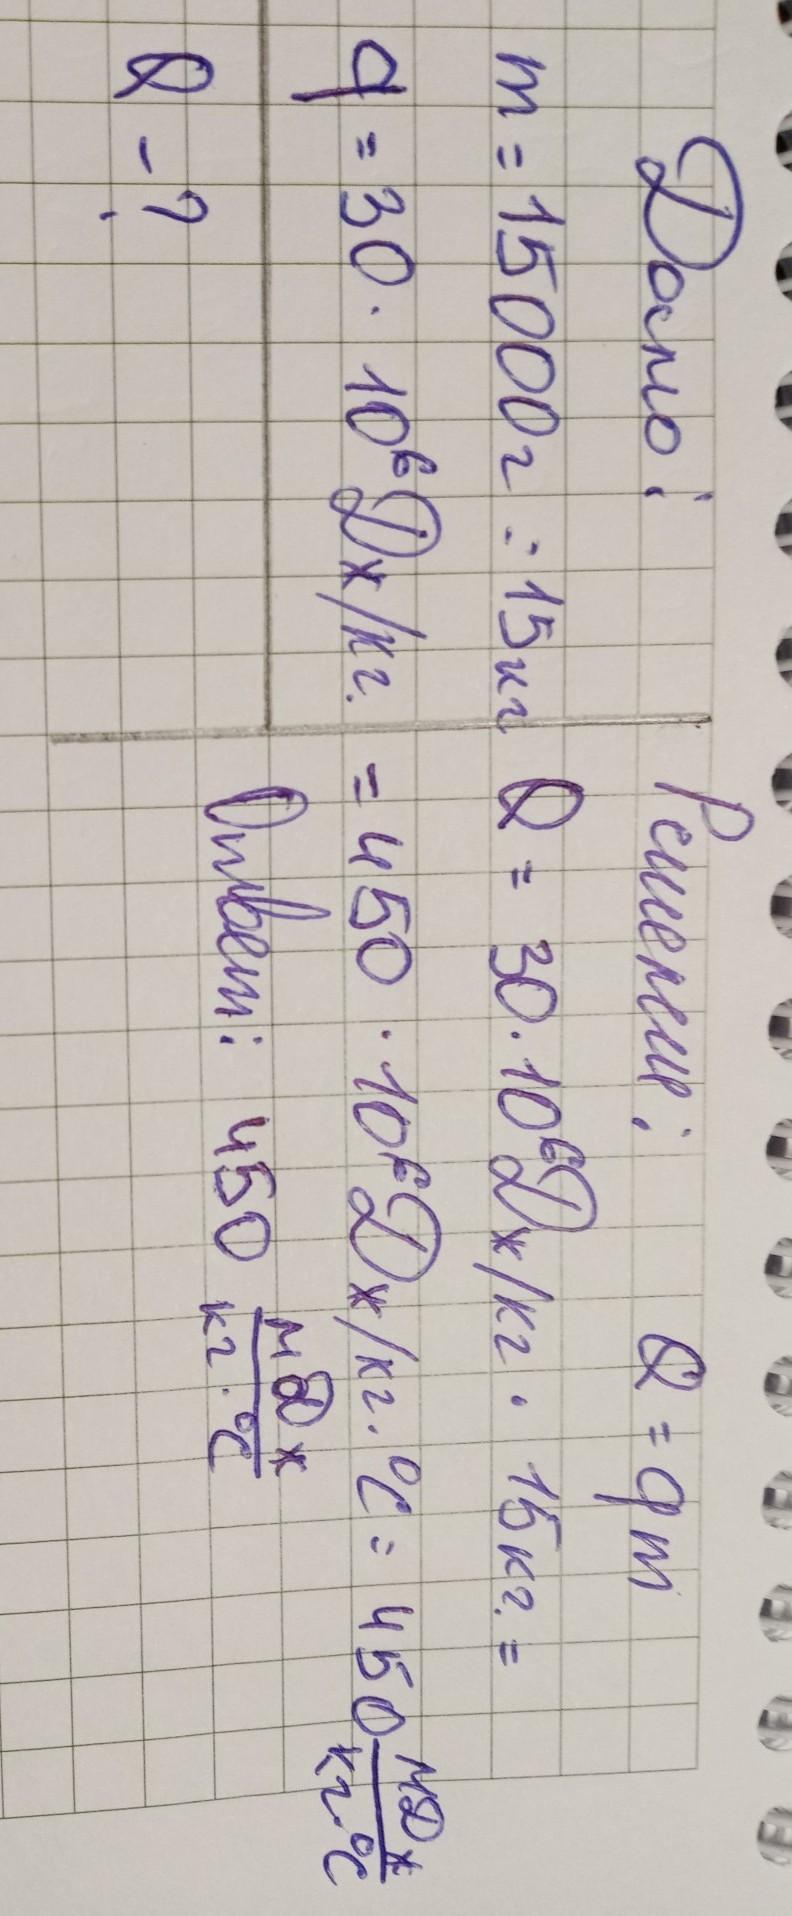 Дано:
m = 15000г = 15кг
q = 30 · 10⁶ Дж/кг.
Q - ?
Решение: Q = qm
Q = 30 · 10⁶ Дж/кг · 15кг. =
= 450 · 10⁶ Дж/кг · °C = 450 МДж/кг·°C
Ответ: 450 МДж/кг·°C